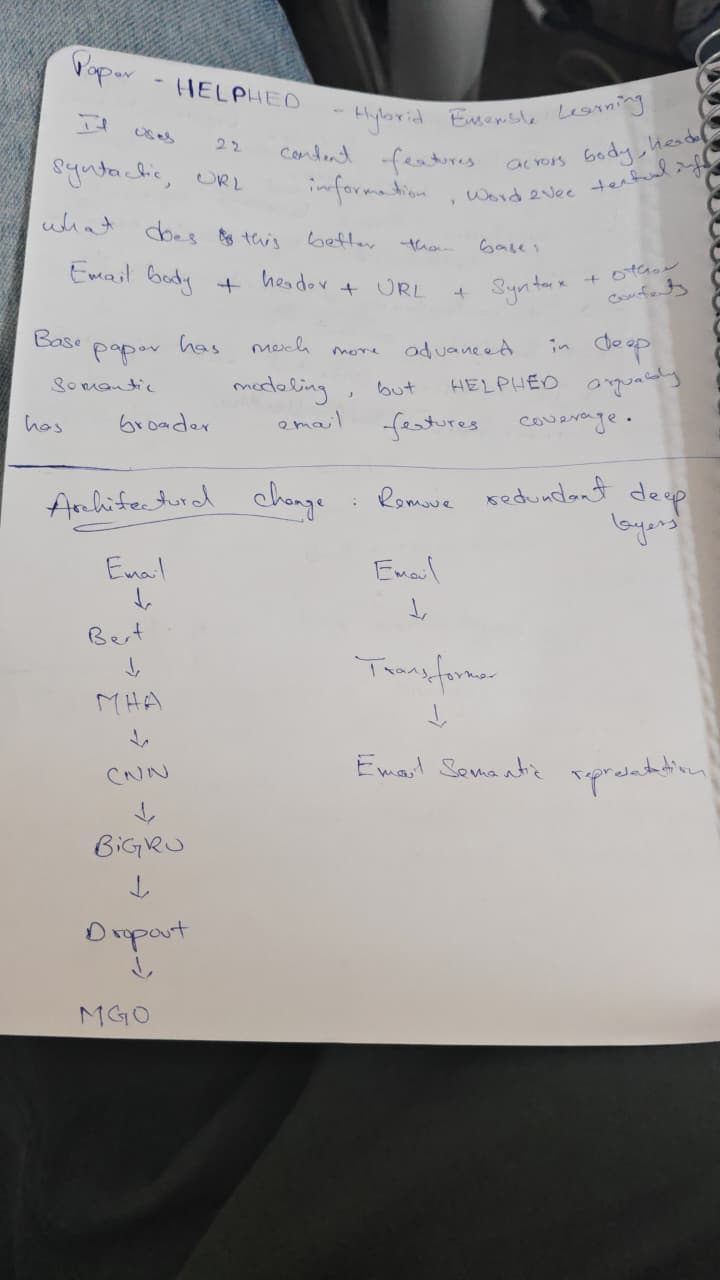 Paper - HELPHED - Hybrid Ensemble Learning
It uses 22 content features across body, header
syntactic, URL information, Word2Vec textual info
what does this better than base:
Email body + header + URL + Syntax + other
contents
Base paper has much more advanced in deep
semantic modeling, but HELPHED arguably
has broader email features coverage.
Architectural change : Remove redundant deep
layers
Email
↓
Bert
↓
MHA
↓
CNN
↓
BiGRU
↓
Dropout
↓
MGO
Email
↓
Transformer
↓
Email Semantic representation